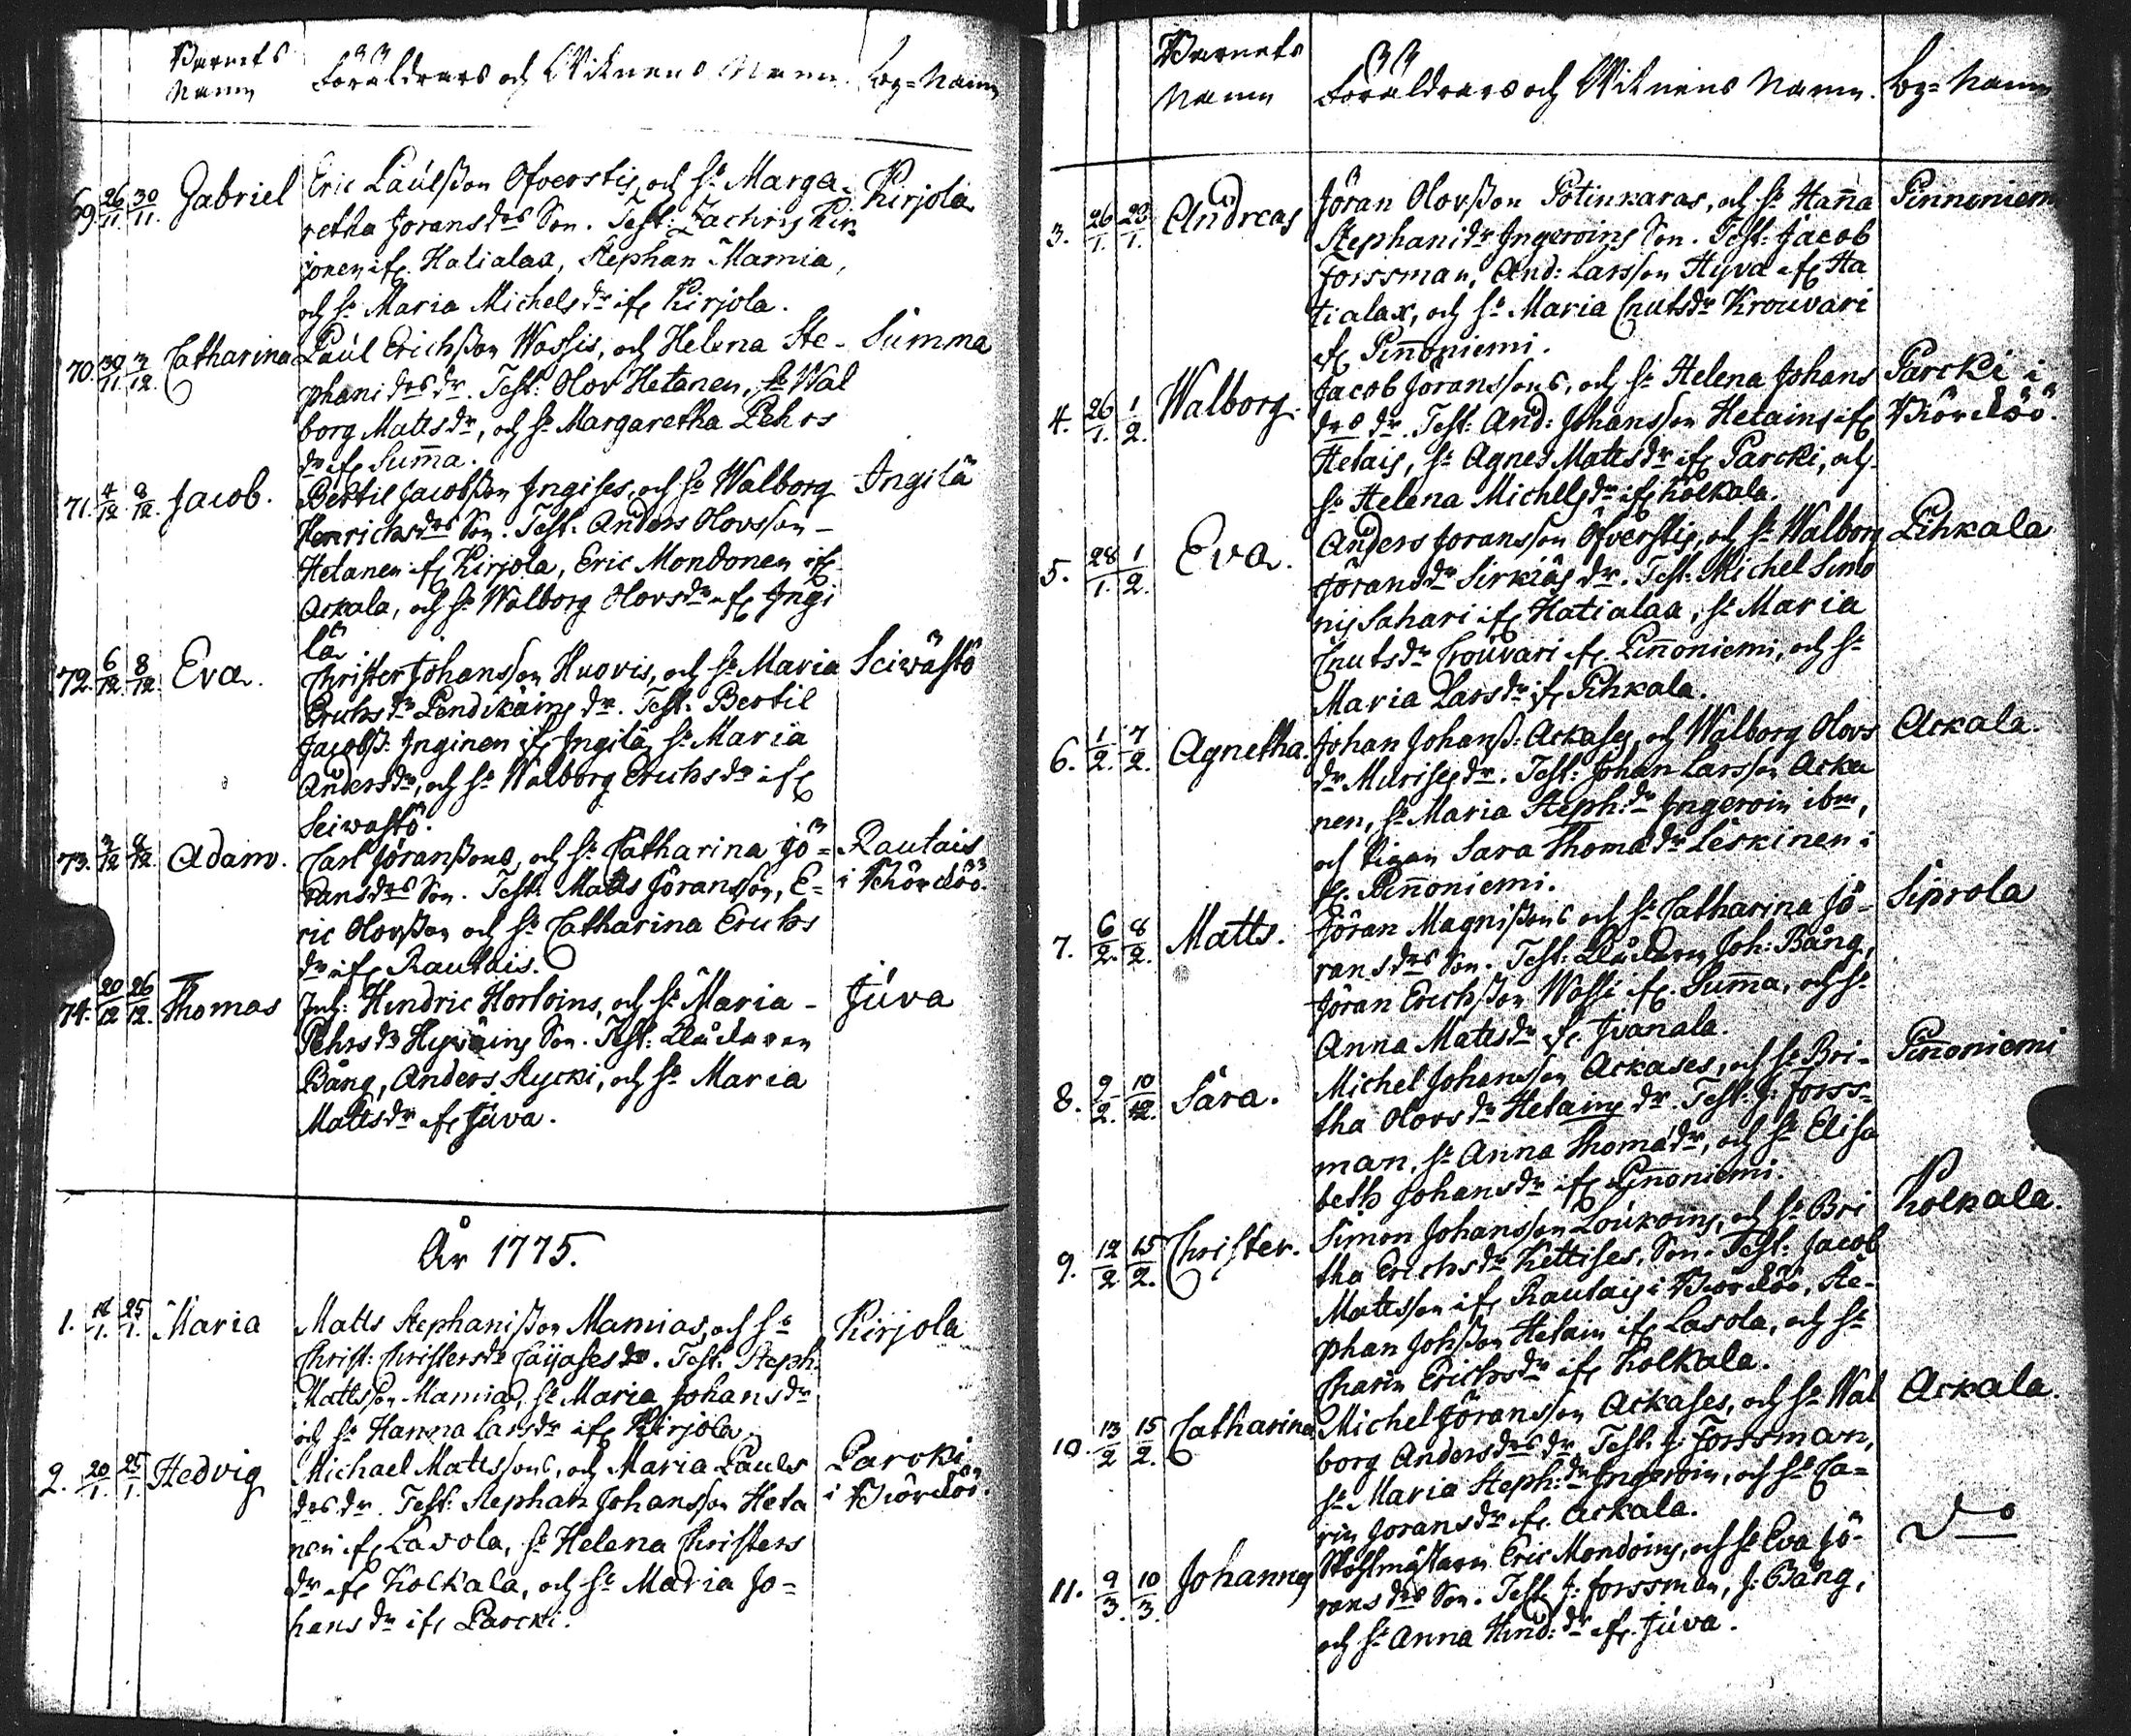 Barnets Namn
Föräldrars och Witnens Namn.
by=Namn
69. 26/11. 30/11. Gabriel
Eric Paulsson Öfverstis, och h: Marga-
Kirjola
retha Joransdrs Son. Test: Zachris Kir-
jonen ifr. Hatialax, Stephan Mamia,
och h: Maria Michelsdr ifr Kirjola.
70. 30/11. 4/12. Catharina
Paul Erichsson Wassis, och Helena Ste-
Summa
phanidrs dr. Test: Olov Hetanen, h: Wal
borg Mattsdr, och h: Margaretha Pehrs
dr ifr Suma.
71. 4/12. 8/12. Jacob.
Bertil Jacobsson Ingises, och h: Walborg
Ingilä
Henrichsdrs Son. Test: Anders Olovsson-
Hetanen ifr Kirjola, Eric Mondonen ifr
Ackala, och h: Walborg Olovsdr ifr Ingi
lä.
72. 6/12. 8/12. Eva.
Christer Johansson Huovis, och h: Maria
Seiwästö
Erichsdr Pendikäins dr. Test: Bertil
Jacobss: Inginen ifr Ingilä, h: Maria
Andersdr, och h: Walborg Erichsdr ifr
Seiwastö.
73. 3/12 8/12. Adam.
Carl Jöranssons, och h: Catharina Jö=
Rautais
ransdrs Son. Test: Matts Jöransson, E=
i Björcköö.
ric Olovsson och h: Catharina Erichs
dr ifr Rautais.
74. 20/12 26/12. Thomas
Inh: Hindric Hortoins, och h: Maria-
Juva
Pehrsdr Hyväins Son. Test: Klåckaren
Bång, Anders Stycki, och h: Maria
Mattsdr ifr Juva.
År 1775.
1. 14/1. 25/1. Maria
Matts Stephanisson Mamias, och h:
Kirjola
Christ: Christersdr Caijases dr. Test: Steph:
Mattsson Mamia, h: Maria Johansdr
och h: Hanna Larsdr ifr Kirjola.
2. 20/1. 25/1. Hedvig
Michael Matssons, och Maria Pauls
Parcki
drs dr. Test: Stephan Johansson Heta
i Björcköö.
nen ifr Lavola, h: Helena Christers
dr ifr Kolkala, och h: Maria Jo=
hansdr ifr Parcki.
Barnets Namn
Föräldrars och Witnens Namn.
by=Namn
3. 26/1. 28/1. Andreas
Jöran Olovsson Potinkaras, och h: Hana
Pinnoniemi
Stephanidr Ingeroins Son. Test: Jacob
Forssman, And: Larsson Hyvä ifr Ha
tialax, och h: Maria Cnutsdr Krouvari
ifr Pinoniemi.
4. 26/1. 1/2. Walborg.
Jacob Jöranssons, och h: Helena Johans
Parcki i
drs dr. Test: And: Johansson Hetains ifr
Björcköö.
Hetais, h: Agnes Mattsdr ifr Parcki, och
h: Helena Michelsdr ifr Kolkala.
5. 28/1. 1/2. Eva.
Anders Joransson Öfverstis, och h: Walborg
Pihkala
Jöransdr Sirkiäs dr. Test: Michel Simo
nis Sahari ifr Hatialax, h: Maria
Cnutsdr Crouvari ifr Pinoniemi, och h:
Maria Larsdr ifr Pihkala.
6. 1/2. 7/2. Agnetha.
Johan Johanss: Ackases, och Walborg Olovs
Ackala.
dr Murises dr. Test: Johan Larsson Acka
nen, h: Maria Steph:dr Ingeroin ibm,
och Pigan Sara Thomadr Leskinen i
fr. Pinnoniemi.
7. 6/2. 8/2. Matts.
Jöran Magnissons och h: Catharina Jö-
Siprola
ransdrs Son. Test: Klåckarn Joh: Bång,
Jöran Erichsson Wassi ifr. Suma, och h:
Anna Matsdr ifr. Ivanala.
8. 9/2. 10/2. Sara.
Michel Johansson Ackases, och h: Bri-
Pinoniemi
tha Olovsdr Hetains dr. Test: J: Forss-
man, h: Anna Thomadr, och h: Elisa
beth Johansdr ifr Pinoniemi.
9. 12/2 15/2. Christer.
Simon Johansson Loukoins, och h: Bri
Kolkala.
tha Erichsdr Kettises, Son. Test: Jacob
Matsson ifr Rautais i Björcköö, Ste-
phan Johsson Hetain ifr Lavola, och h:
Charin Erichsdr ifr Kolkala.
10. 13/2 15/2. Catharina
Michel Jöransson Ackases, och h: Wal
Ackala.
borg Andersdrs dr. Test: J: Forssman,
h: Maria Steph:dr Ingeroin, och h: Ca=
rin Joransdr ifr. Ackala.
11. 9/3. 10/3. Johannes
Eric Mondoins, och h: Eva Jö-
Do
ransdrs Son. Test: J: Forssman, J: Bång,
och h: Anna Hind:dr ifr. Juva.